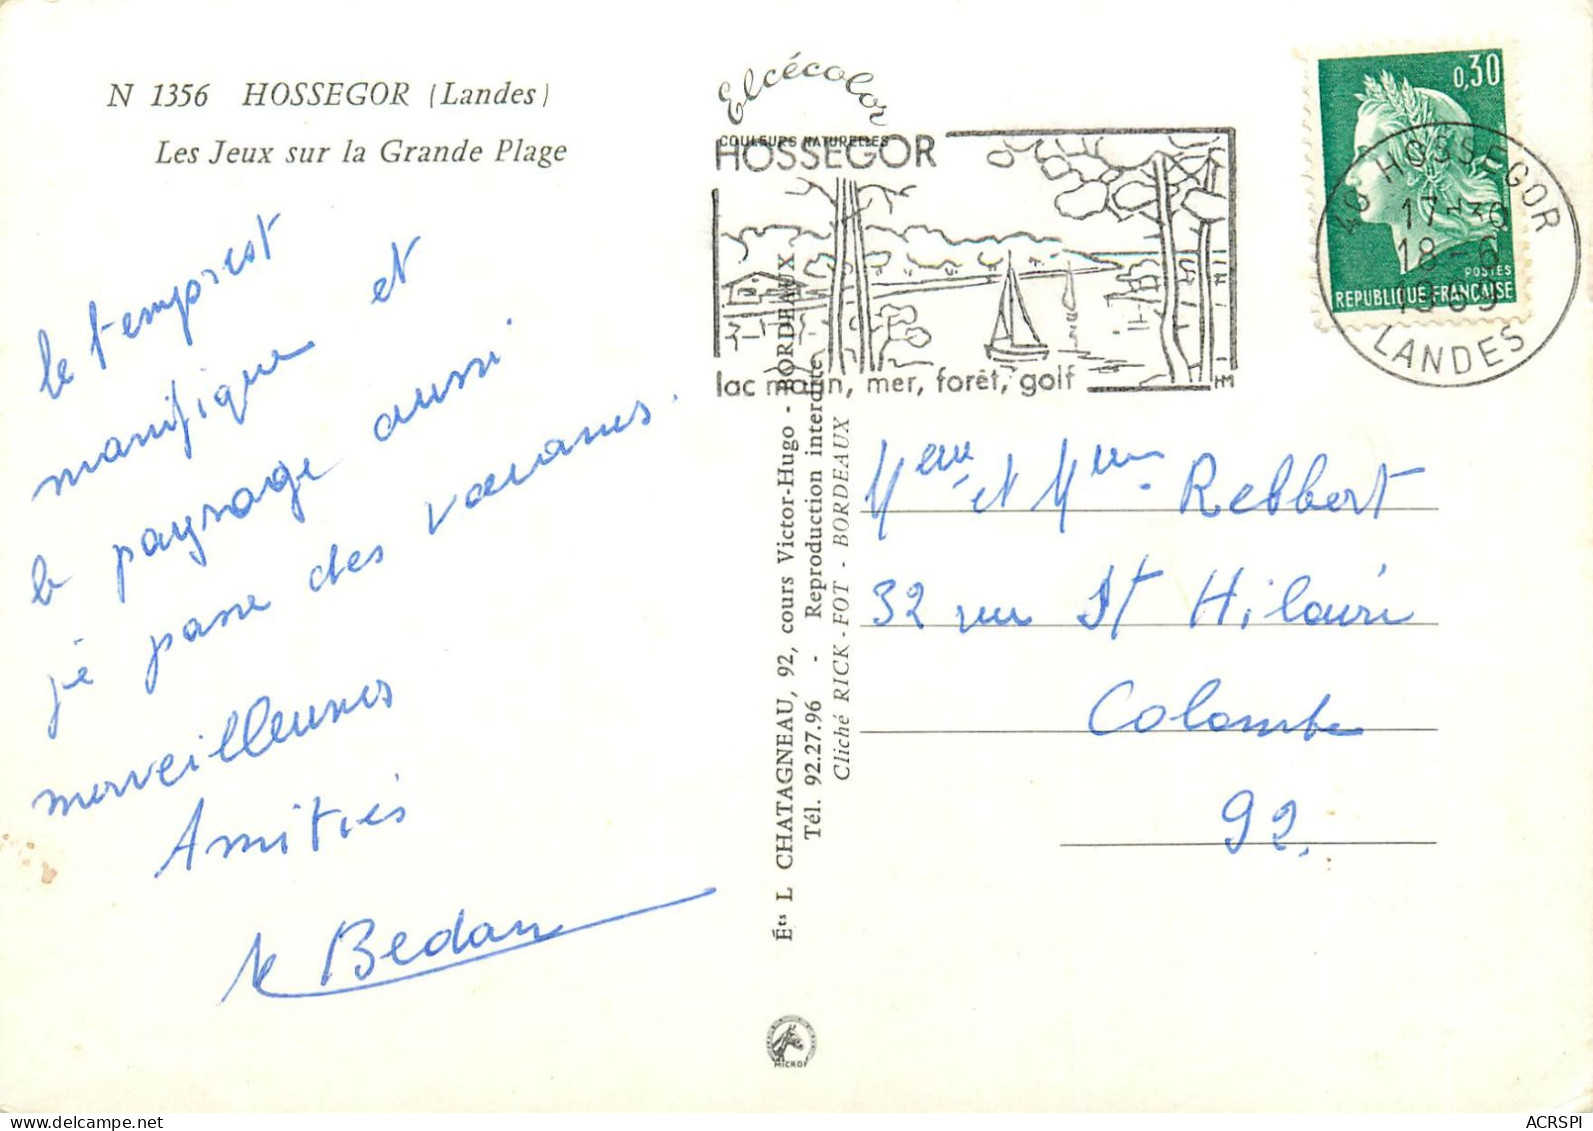 N 1356 HOSSEGOR (Landes)
Les Jeux sur la Grande Plage
le temps est
manifique et
le paysage aussi
je passe des vacances.
merveilleuses
Amitiés
Bedan
Elcécolor
COULEURS NATURELLES
HOSSEGOR
lac marin, mer, forêt, golf
HM
0,30
POSTES
REPUBLIQUE FRANÇAISE
40 HOSSEGOR
17-30
18-6
1969
LANDES
Éts L CHATAGNEAU, 92, cours Victor-Hugo - BORDEAUX
Tél. 92.27.96 - Reproduction interdite
Cliché RICK-FOT - BORDEAUX
et Rebbert
32 rue St Hilaire
Colombe
92.
MICRO
ACRSPI